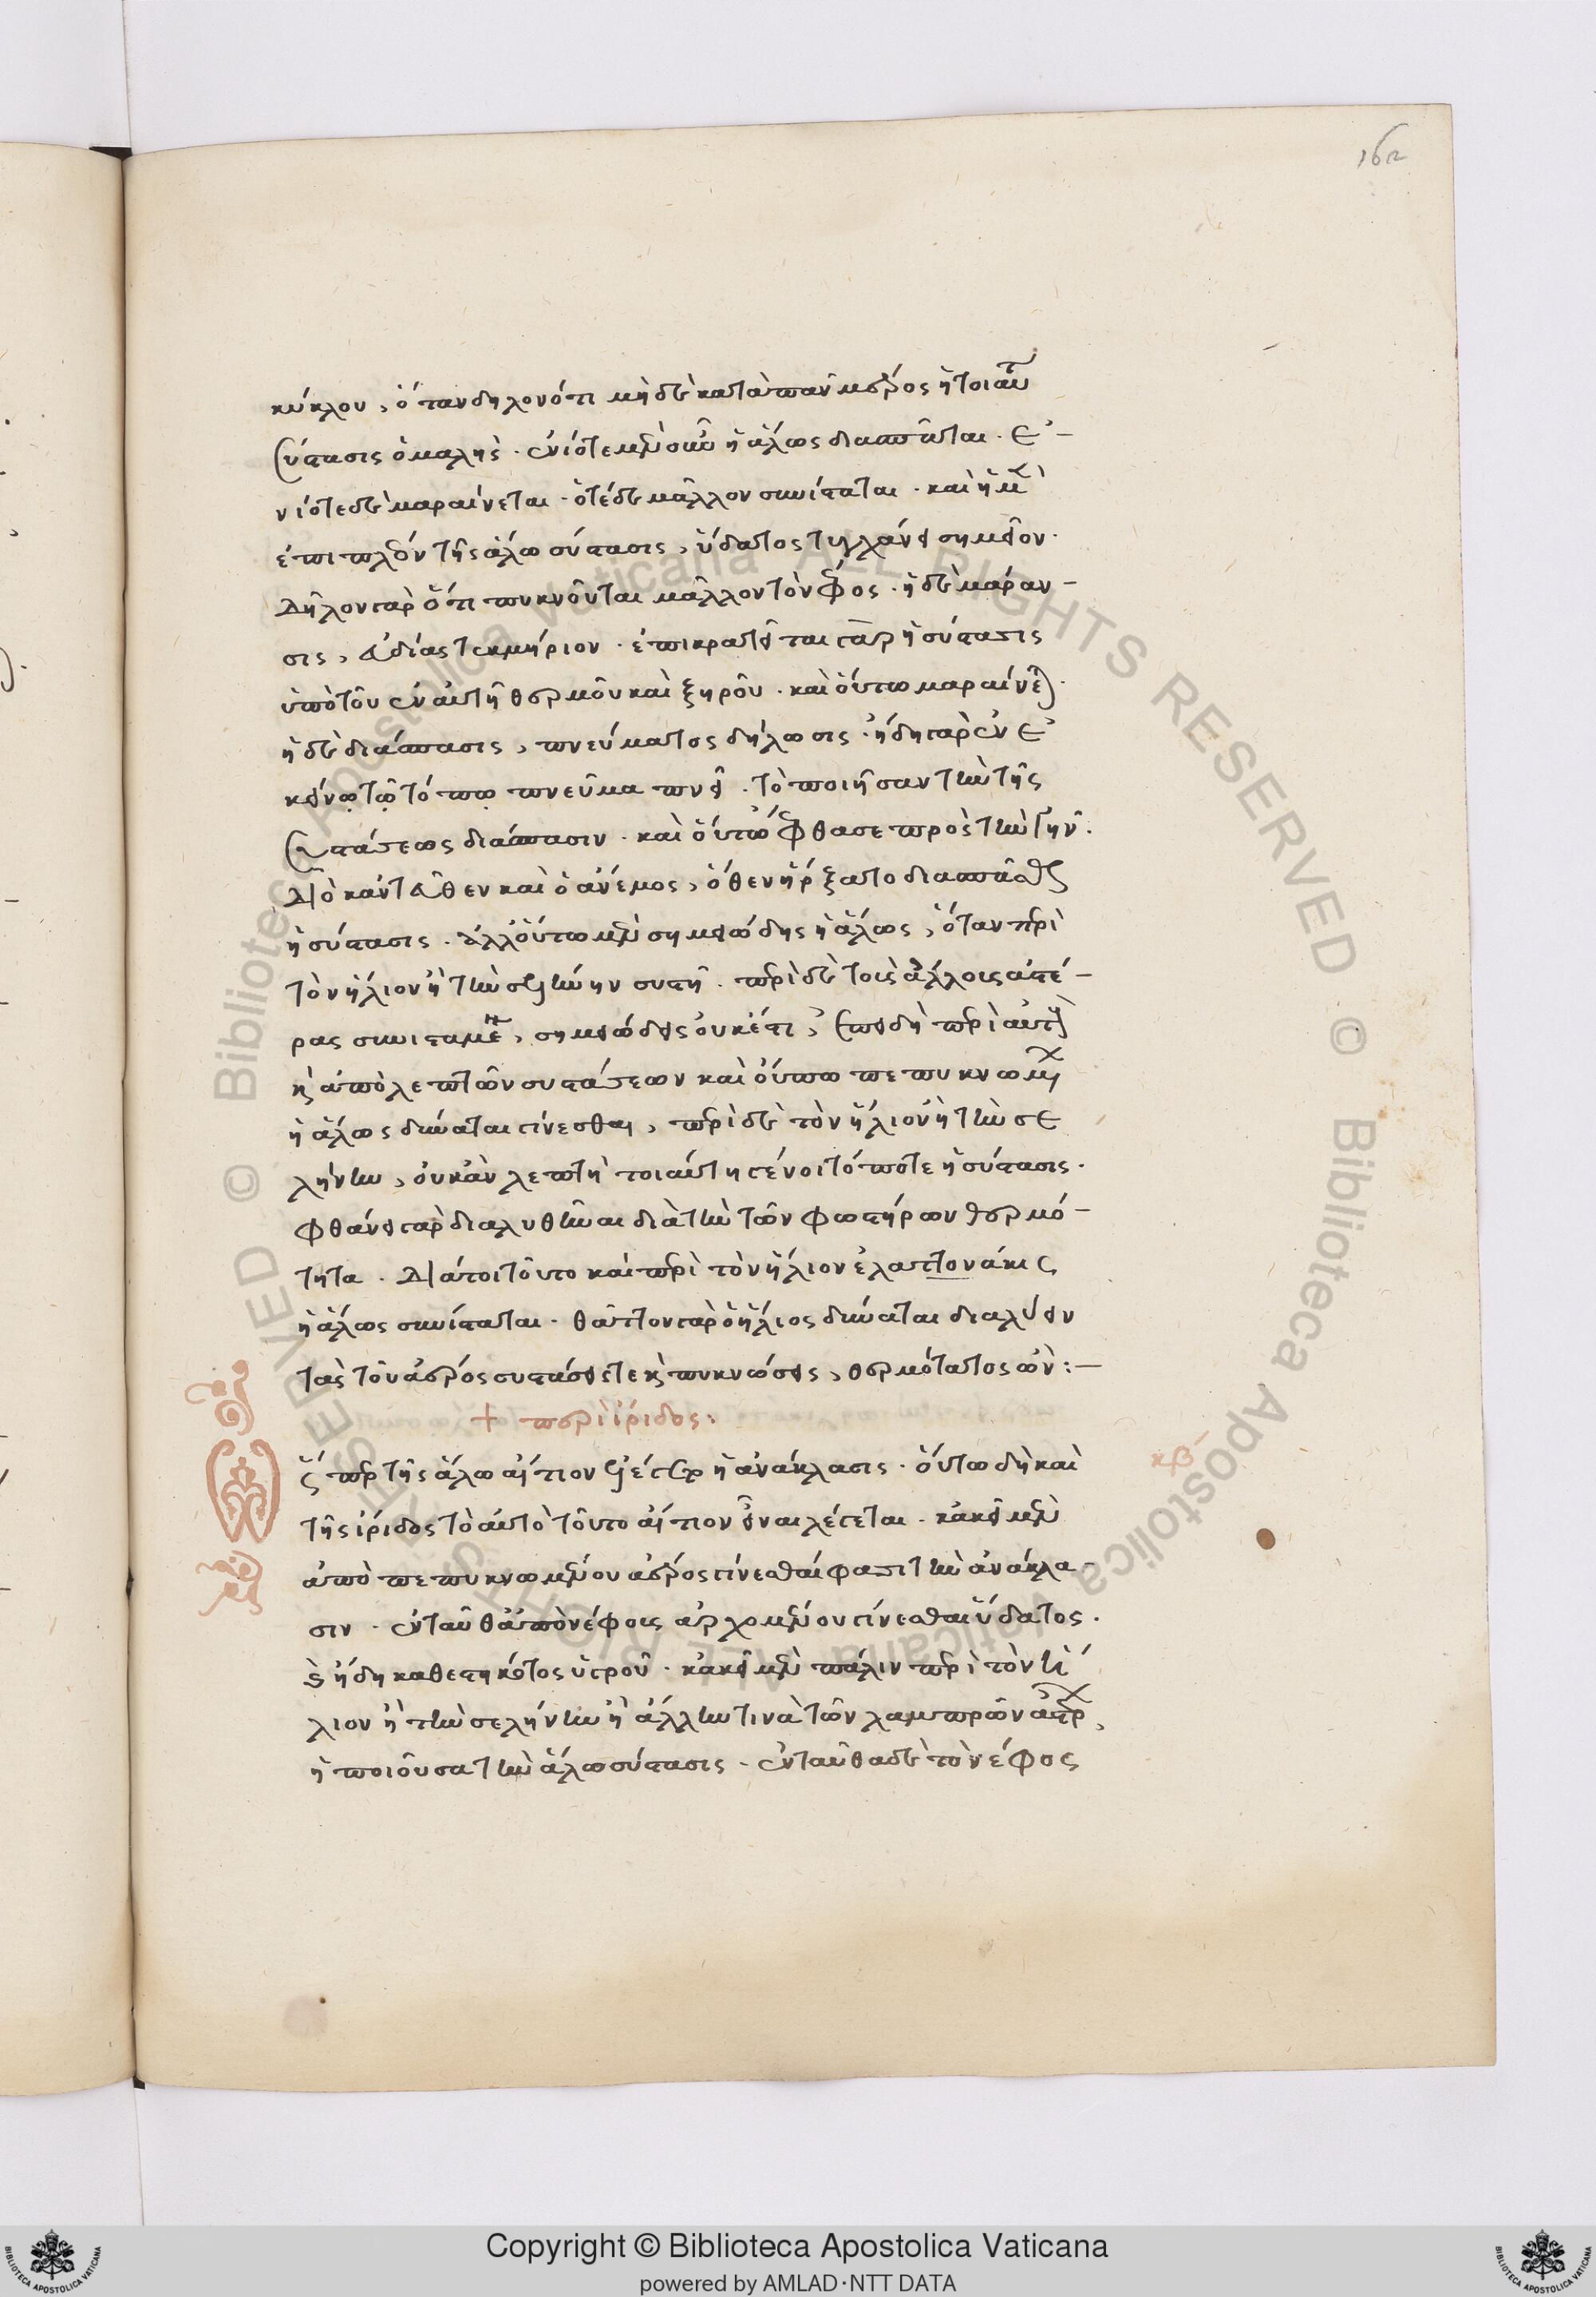 162
κύκλου, ὅταν δηλονότι μὴ δὲ κατὰ πᾶν μέρος ἡ τοιαύτη
σύστασις ὁμαλής. ἐνίοτε μὲν οὖν ἡ ἅλως διασπᾶται. ἐ-
νίοτε δὲ μαραίνεται. ὁτὲ δὲ μᾶλλον συνίσταται. καὶ ἡ μὲν
ἐπιπλέον τῆς ἅλω σύστασις, ὕδατος τυγχάνει σημεῖον.
Δῆλον γὰρ ὅτι πυκνοῦται μᾶλλον τὸ νέφος. ἡ δὲ μάραν-
σις, εὐδίας τεκμήριον. ἐπικρατεῖται γὰρ ἡ σύστασις
ὑπὸ τοῦ ἐν αὐτῇ θερμοῦ καὶ ξηροῦ. καὶ οὕτω μαραίνεται.
ἡ δὲ διάσπασις, πνεύματος δήλωσις. ἤδη γὰρ ἐν ἐ
κείνῳ τῷ τόπῳ πνεῦμα πνεῖ. τὸ ποιῆσαν τὴν τῆς
συστάσεως διάσπασιν. καὶ οὕπω ἔφθασε πρὸς τὴν γῆν.
Διὸ κἀντεῦθεν καὶ ὁ ἄνεμος, ὅθεν ἤρξατο διασπᾶσθαι
ἡ σύστασις. ἀλλ' οὕτω μὲν σημειώδης ἡ ἅλως, ὅταν περὶ
τὸν ἥλιον ἢ τὴν σελήνην συστῇ. περὶ δὲ τοῖς ἄλλοις ἀστέ-
ρας συνισταμένη, σημειώδης οὐκέτι, ἐπειδὴ περὶ αὐτοὺς
κἀπὸ λεπτῶν συστάσεων καὶ οὔπω πεπυκνωμένων
ἡ ἅλως δύναται γίνεσθαι, περὶ δὲ τὸν ἥλιον ἢ τὴν σε
λήνην, οὐκ ἂν λεπτὴ τοιαύτη γένοιτό ποτε ἡ σύστασις.
Φθάνει γὰρ διαλυθῆναι διὰ τὴν τῶν φωστήρων θερμό-
τητα. Διά τοι τοῦτο καὶ περὶ τὸν ἥλιον ἐλαττονάκις
ἡ ἅλως συνίσταται. θᾶττον γὰρ ὁ ἥλιος δύναται διαλύειν
τὰς τοῦ ἀέρος συστάσεις τε καὶ πυκνώσεις, θερμότατος ὤν:—
+ περὶ ἴριδος:
ὥσπερ τῆς ἅλω αἴτιον ἐλέγετο ἡ ἀνάκλασις. οὕτω δὴ καὶ
κβ
τῆς ἴριδος τὸ αὐτὸ τοῦτο αἴτιον εἶναι λέγεται. κἀκεῖ μὲν
ἀπὸ πεπυκνωμένου ἀέρος γίνεσθαί φασι τὴν ἀνάκλα-
σιν. ἐνταῦθα ἀπὸ νέφους ἀρχομένου γίνεσθαι ὕδατος.
καὶ ἤδη καθεστηκότος ὑγροῦ. κἀκεῖ μὲν πάλιν περὶ τὸν ἥ
λιον ἢ τὴν σελήνην ἢ ἄλλην τινὰ τῶν λαμπρῶν ἀστέρων,
ἡ ποιοῦσα τὴν ἅλω σύστασις. ἐνταῦθα δὲ τὸ νέφος
Copyright © Biblioteca Apostolica Vaticana
powered by AMLAD·NTT DATA